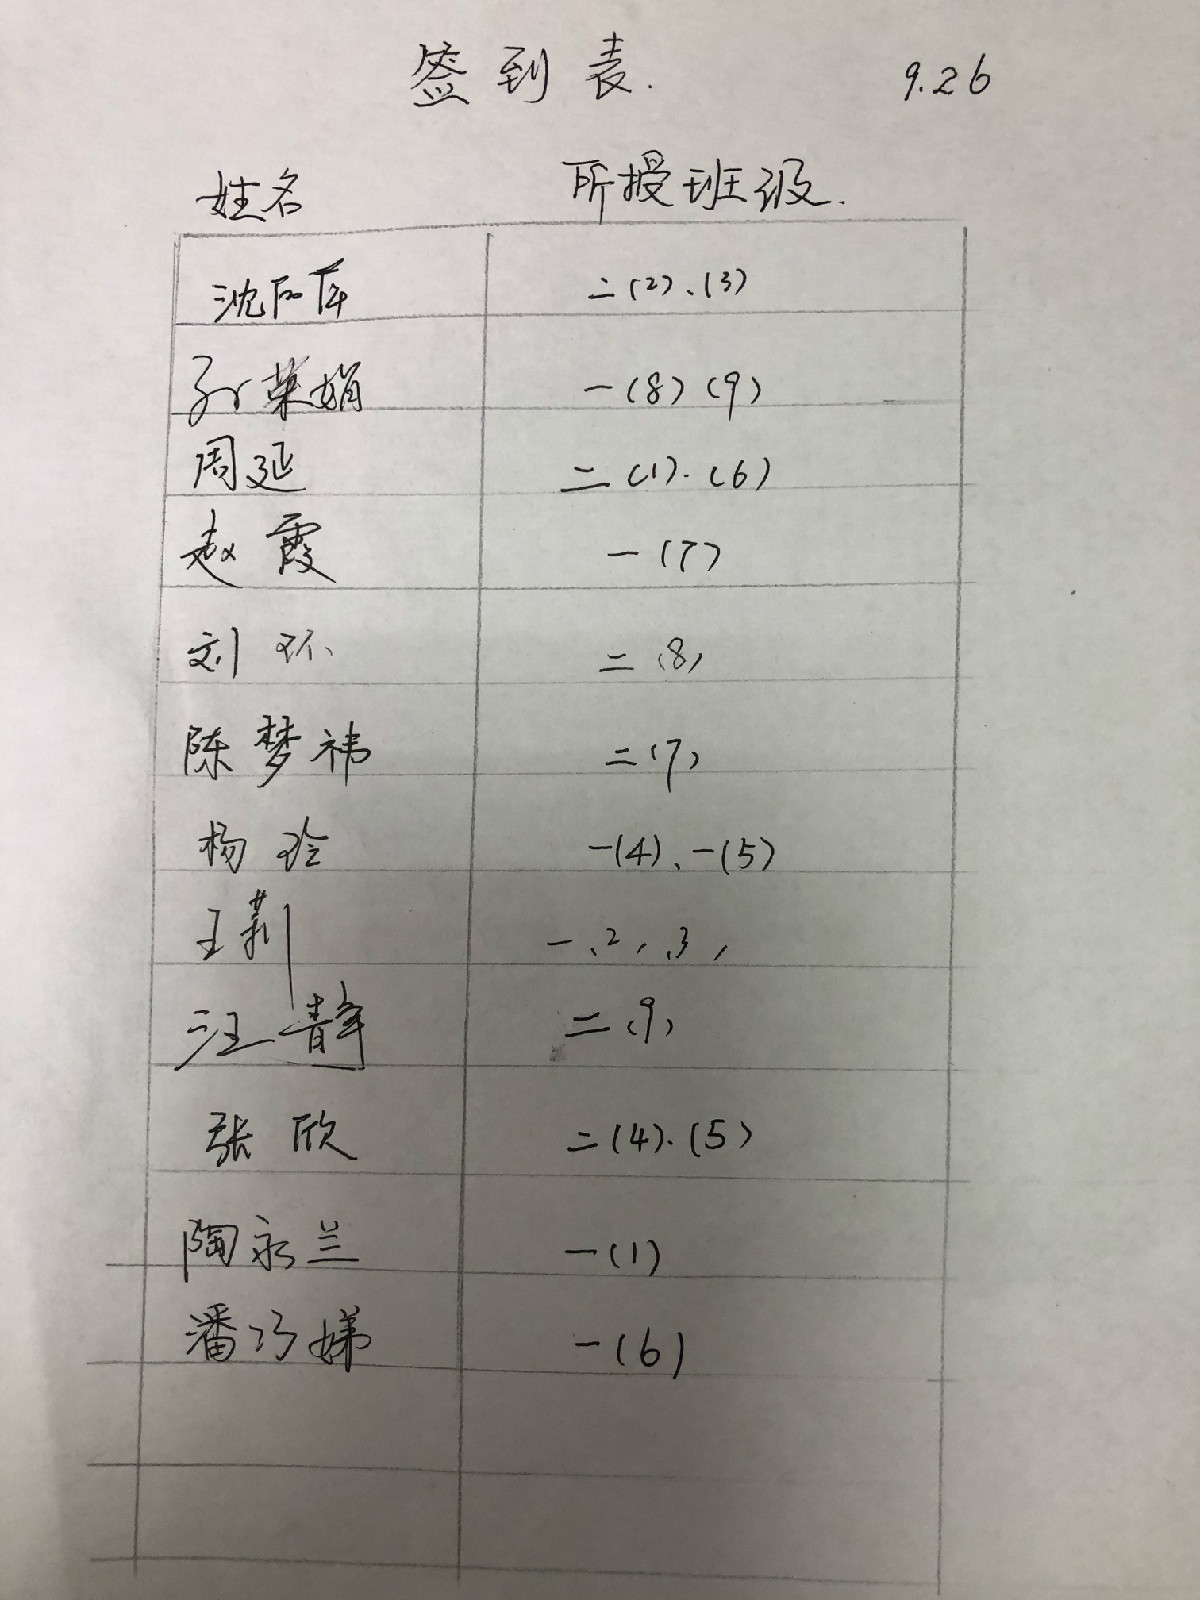 签到表. 9.26
姓名 所授班级.
沈 二(2)、(3)
孙荣娟 一(8)(9)
周延 二(1).(6)
赵霞 一(7)
刘环 二(8)
陈梦祎 二(7)
杨玲 一(4)、一(5)
王莉 一(2)(3)
汪静 二(9)
张欣 二(4).(5)
陶永兰 一(1)
潘巧娣 一(6)